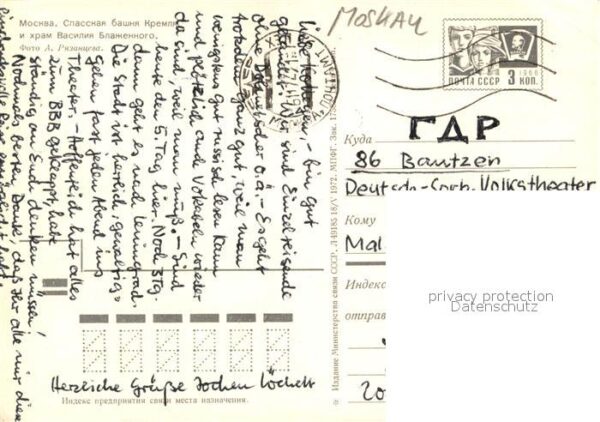 Москва. Спасская башня Кремля
и храм Василия Блаженного.
Фото А. Рязанцева.
MOSKAU
ПОЧТА СССР
1966
3 КОП.
Liebe Kollegen, – bin gut
Wir sind Einzelreisende
ohne Dolmetscher o.ä. – Es geht
trotzdem ganz gut, weil man
wenigstens gut russisch lesen kann
und plötzlich auch Vokabeln wieder
da sind, weil man muß. – Sind
heute den 5. Tag hier. Noch 3 Tg.
dann geht es nach Leningrad.
Die Stadt ist herrlich, gewaltig.
Gehen fast jeden Abend ins
Theater. – Hoffentlich hat alles
zum BBB geklappt, habe
ständig an Euch denken müssen!
Nochmals besten Dank, daß Ihr alle mir diese
ermöglicht habt.
Herzliche Grüße Jochen
Куда
ГДР
86 Bautzen
Deutsch-Sorb. Volkstheater
Кому
Mal
Индекс
отправ
privacy protection
Datenschutz
20
Издание Министерства связи СССР. Л 49185 18/V 1972. МПФГ. Зак.
Индекс предприятия связи места назначения.